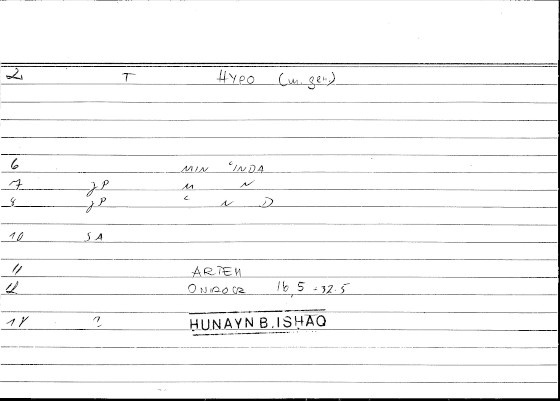 2 T HYPO (m. gen)
6 MIN ʿINDA
7 gP M N
8 gP ʿ N D
10 SA
11 ARTEM
12 ONIROCR 16,5-32.5
14 ? HUNAYN B. ISHAQ